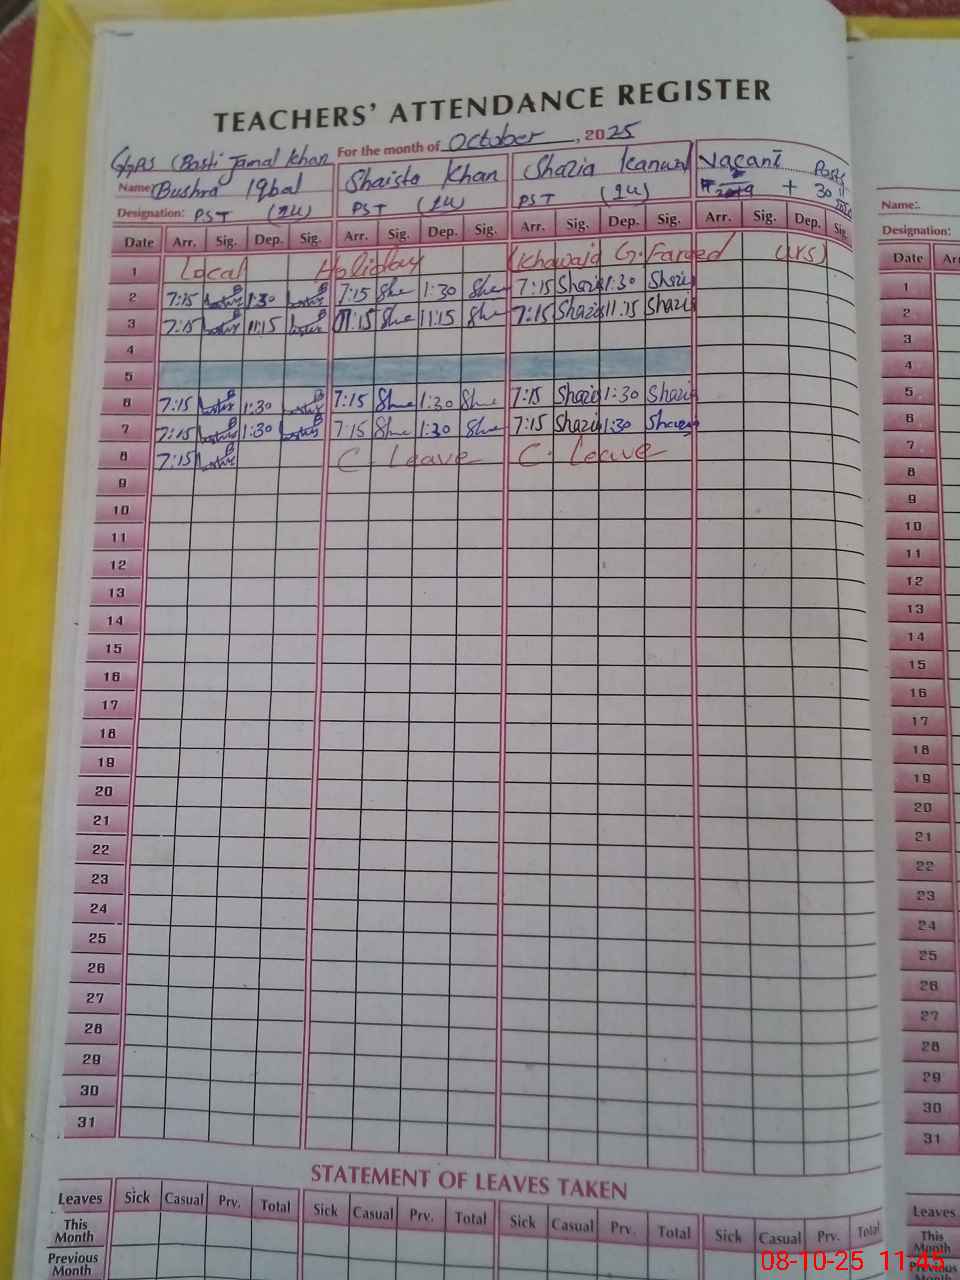 TEACHERS' ATTENDANCE REGISTER
For the month of October, 2025
GGPS (Basti Jamal Khan
Name: Bushra Iqbal Shaista Khan Shazia Vacant Posts
+ 30
Designation: PST PST PST
Date Arr. Sig. Dep. Sig. Arr. Sig. Dep. Sig. Arr. Sig. Dep. Sig. Arr. Sig. Dep. Sig.
1 Local Holiday (Khawaja G. Fareed Urs)
2 7:15 1:30 7:15 Sha 1:30 Sha 7:15 Shazia 1:30 Shazia
3 7:15 11:15 7:15 Sha 11:15 Sha 7:15 Shazia 11:15 Shazia
4
5
6 7:15 1:30 7:15 Sha 1:30 Sha 7:15 Shazia 1:30 Shazia
7 7:15 1:30 7:15 Sha 1:30 Sha 7:15 Shazia 1:30 Shazia
8 7:15 C. Leave C. Leave
9
10
11
12
13
14
15
16
17
18
19
20
21
22
23
24
25
26
27
28
29
30
31
STATEMENT OF LEAVES TAKEN
Leaves Sick Casual Prv. Total Sick Casual Prv. Total Sick Casual Prv. Total Sick Casual Prv. Total
This Month
Previous Month
Name:
Designation:
Date Ar
1
2
3
4
5
6
7
8
9
10
11
12
13
14
15
16
17
18
19
20
21
22
23
24
25
26
27
28
29
30
31
Leaves
This Month
Previous
08-10-25 11:45